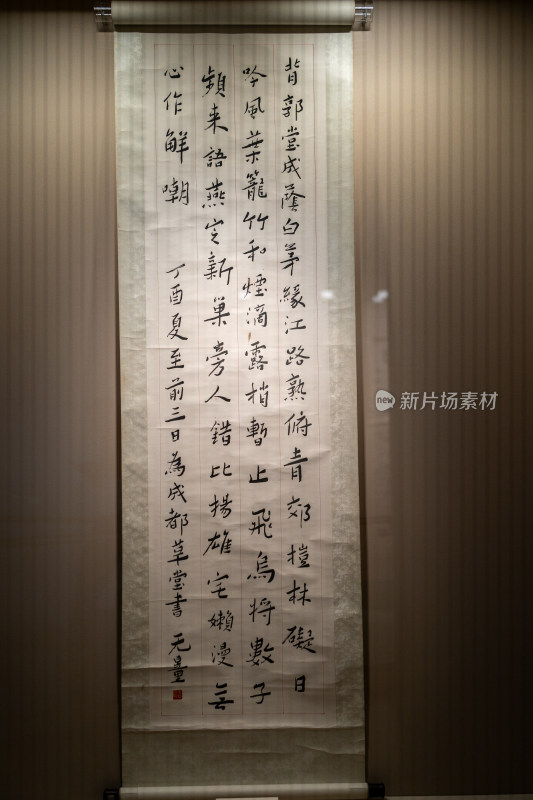 背郭堂成蔭白茅緣江路熟俯青郊榿林礙日
吟風葉籠竹和煙滴露梢暫止飛烏將數子
頻來語燕定新巢旁人錯比揚雄宅嬾漫無
心作解嘲
丁酉夏至前三日為成都草堂書 无量
new 新片场素材